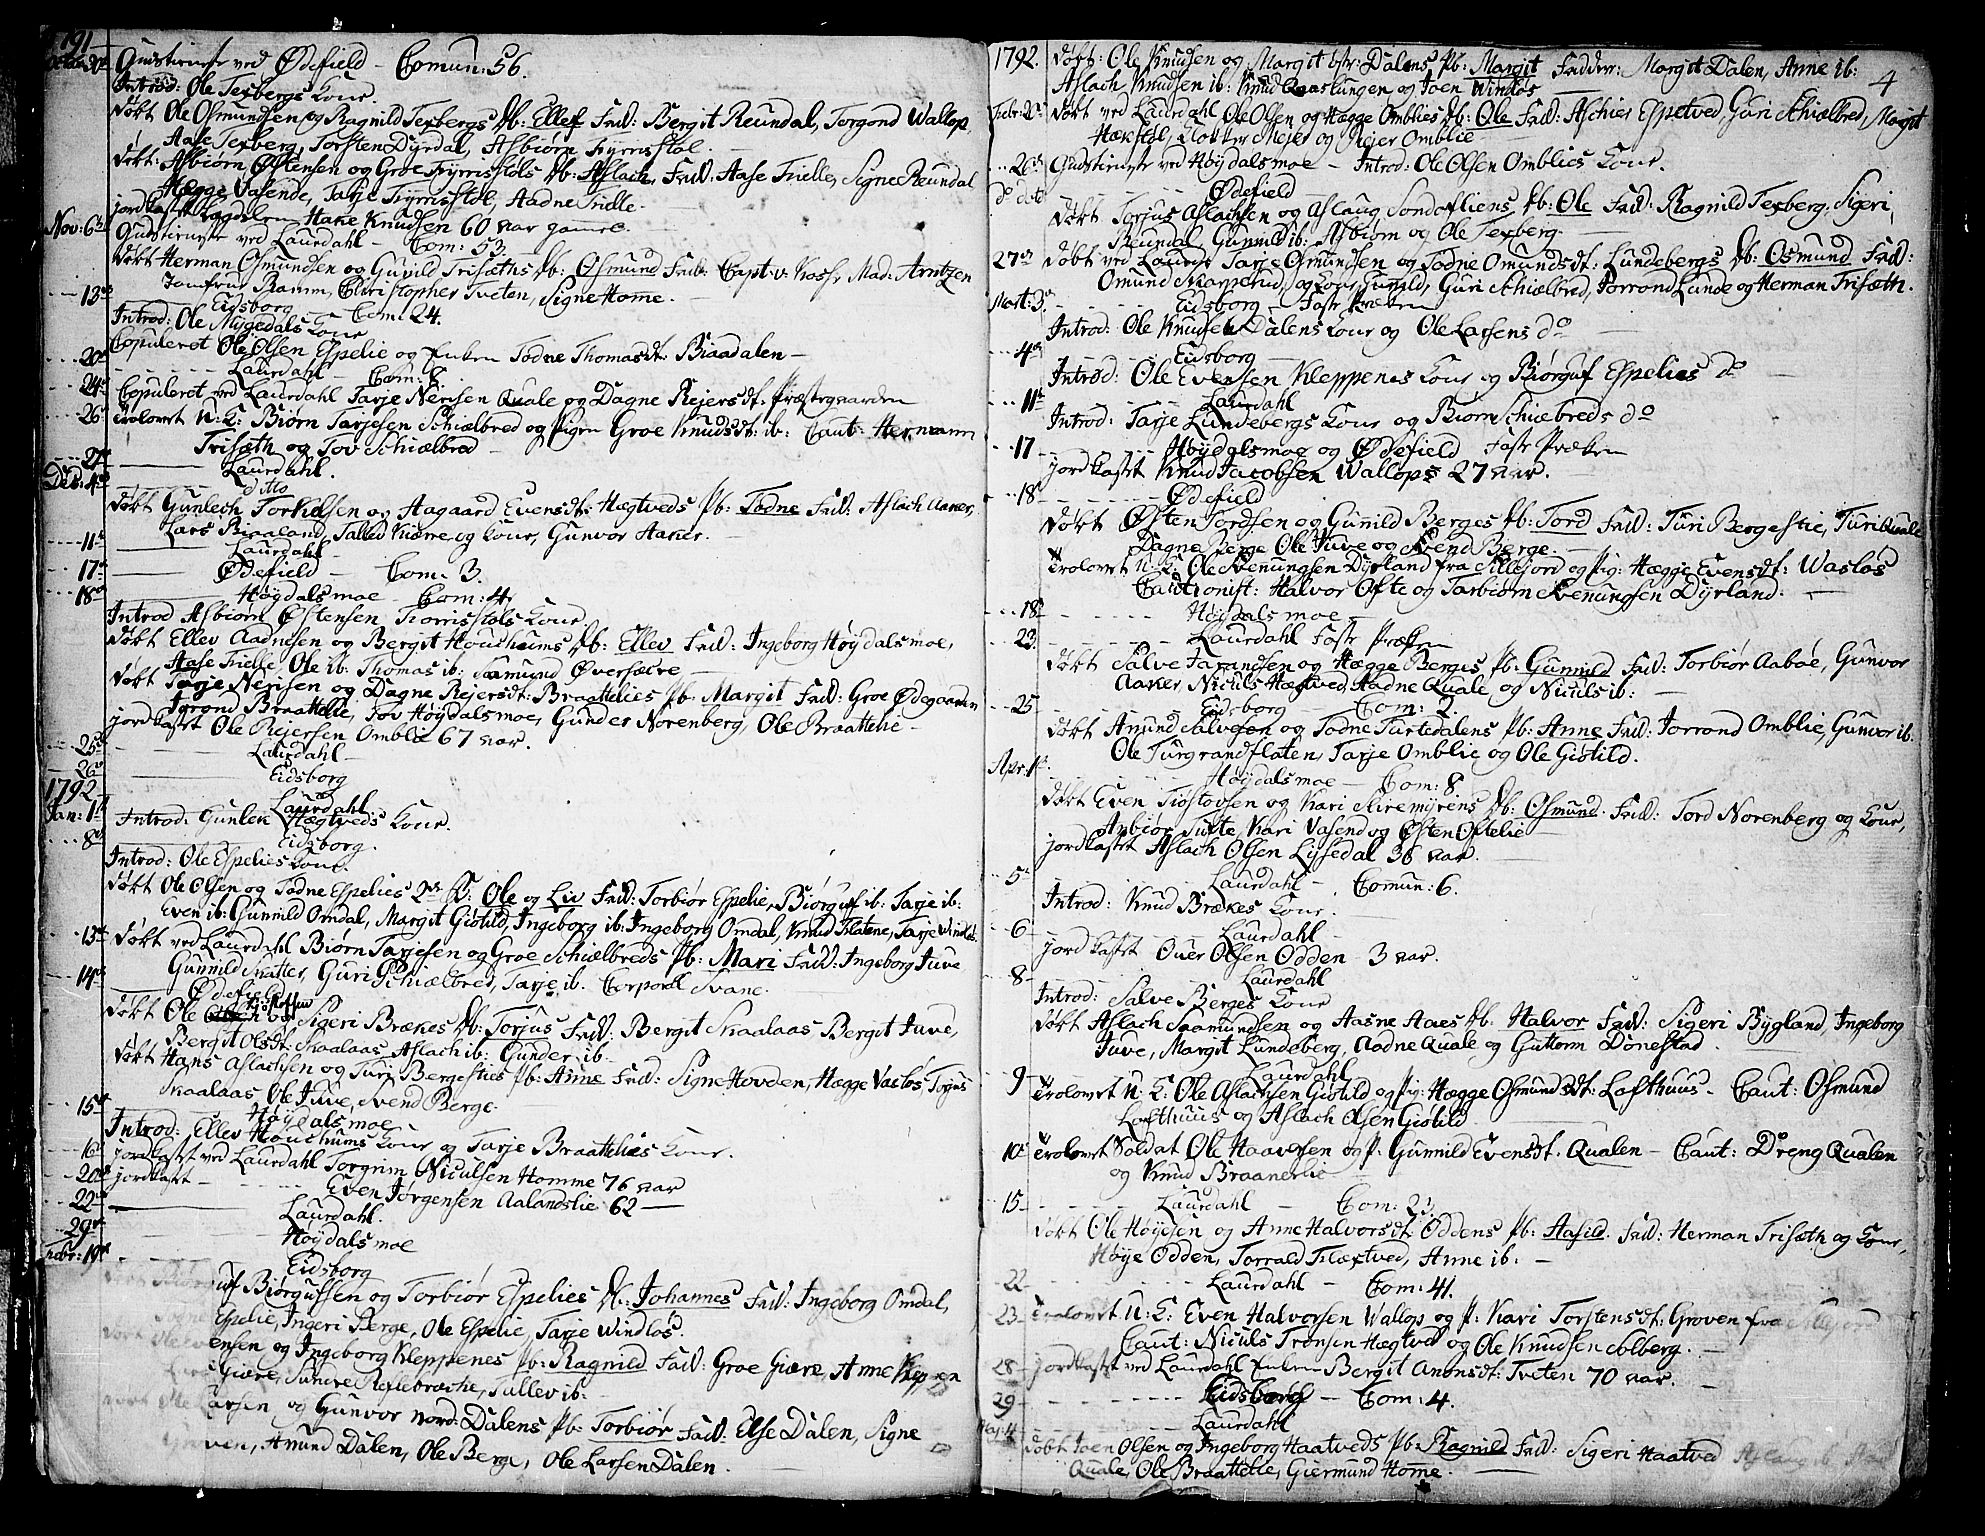 1791
Gudstieneste ved Ødefield – Comun: 56.
Introd: Ole Texbergs Kone.
døbt Ole Osmundsen og Ragnild Texbergs Db: Ellef Fad: Bergit Reundal, Torgond Wallop,
Aase Texberg, Torsten Dyrdal, Asbiørn
døbt: Asbiørn Østensen og Groe Db: Aslach, Fad: Aase Trielle, Signe Reundal
Hægge Vasende, Tarje Aadne Trielle.
jordkastet Hans Knudsen 60 aar gammel.
Nov: 6te Gudstieneste ved Laurdahl – Com: 53.
døbt Herman Osmundsen og Gunild Trisæths Db: Osmund Fad: Capt: v: Mad: Arntzen
Jomfrue Ramm, Christopher Tveten, Signe Home.
13de Eidsborg Com: 24.
Introd: Ole Mygedals Kone
Copuleret Ole Olsen Espelie og Enken Todne Thomasdt: Biaadalen –
20de Laurdahl – Com: 8
24de Copuleret ved Laurdahl Tarje Nerisen Quale og Dagne Rejersdt: Præstegaarden
26 Trolovet U: K: Biørn Tarjesen Schiælbred og Pigen Groe Knudsdt: ib: Caut: Hermann
Trisæth og Tov Schiælbred –
27de Laurdahl.
Deb: 4de ditto
døbt Gunlech Torkelsen og Aagaard Evensdt: Hægtveds Pb: Todne Fad: Aslach Aaker,
Lars Biaaland, Talled Kiære og Kone, Gunvor Aaker.
11te Laurdahl –
17de Ødefield – Com: 3.
18de Høydalsmoe – Com: 4
Introd Asbiørn Østensen Kone
døbt Ellev Aadnesen og Bergit Houchums Db: Ellev Fad: Ingeborg Høydalsmoe,
Aase Trielle, Ole ib: Thomas ib: Samund Øversætre
døbt Tarje Nerisen og Dagne Rejersdt: Braattelies Pb: Margit Fad: Groe Ødegaarden
Tgrond Braattelie, Tov Høydalsmoe, Gunder Norenberg, Ole Braattelie –
jordkastet Ole Rejersen Omblie 67 aar.
25de Laurdahl –
26 Eidsborg
1792
Jan: 1te Laurdahl
Introd: Gunlek Hægtveds Kone.
8de Eidsborg.
Introd: Ole Espelies Kone.
døbt Ole Olsen og Todne Espelies 2de B: Ole og Liv Fad: Torbiør Espelie, Biørguf ib: Tarje ib:
Even ib: Gunnild Omdal, Margit Giøtild, Ingeborg ib: Ingeborg Omdal, Knud Flatene, Tarje Windløs
13de døbt ved Laurdahl Biørn Tarjesen og Groe Schiælbreds Pb: Mari Fad: Ingeborg Juve
Gunnild Skatter, Guri Schiælbred, Tarje ib. Corporal Svane.
14de Ødefield
døbt Ole Sigeri Brækes Db: Torjus Fad: Bergit Skaalaas Bergit Juve,
Bergit Olsdt: Skaalaas Aslach ib: Gunder ib.
døbt Hans Aslachsen og Turi Bergesties Pb: Anne Fad: Signe Hovden, Hægge Vasløs, Torjus
Skaalaas, Ole Juve, Svend Berge.
15de Høydalsmoe
Introd: Ellev Houchums Kone og Tarje Braattelies Kone.
16 jordkastet ved Laurdahl Torgrim Niculsen Homme 76 aar
20de jordkastet – Even Jørgensen Aalandslie 62 –
22de Laurdahl.
29de Høydalsmoe
Febr: 19de Eidsborg
uf Biørgufsen og Torbiør Espelies Db: Johannes Fad: Ingeborg Omdal,
Espelie, Ingeri Berge, Ole Espelie, Tarje Windløs.
ensen og Ingeborg Kleppenes Pb: Ragnild Fad: Groe Giære, Anne Kleppen
Giære, Sunive Tallev ib:
arsen og Gunvor Nord: Dalens Pb: Torbiør Fad: Else Dalen, Signe
ven, Amund Dalen, Ole Berge, Ole Larsen Dalen.
1792. døbt: Ole Knudsen og Margit Dalens Pb: Margit Fadder: Margit Dalen, Anne ib:
Aslach Knudsen ib: Knud og Joen Windløs 4
Febr: 2de døbt ved Laurdahl Ole Olsen og Hægge Omblies Db: Ole Fad: Aschier Espetved, Guri Schiælbred, Margit
Hækstøl, Klokker Mejer og Rejer Omblie
26de Gudstieneste ved Høydalsmoe – Introd: Ole Olsen Omblies Kone.
do dito Ødefield
døbt Torjus Aslachsen og Aslaug Sondefliens Db: Ole Fad: Ragnild Texberg, Sigeri
Reundal, Gunnild ib: Asbiørn og Ole Texberg.
27de døbt ved Laurdahl Tarje Osmundsen og Todne Omundsdt: Lundebergs Db: Osmund Fad:
Omund og Kone Gunild, Guri Schiælbred, Jorrond Lunde og Herman Trisæth.
Mart: 3de Eidsborg – Faste Præken
Introd: Ole Knudsen Dalens Kone og Ole Larsens do
4de Eidsborg –
Introd: Ole Evensen Kleppenes Kone og Biørguf Espelies do –
11te Laurdahl
Introd: Tarje Lundebergs Kone og Biørn Schiælbreds do
17 Høydalsmoe og Ødefield Faste Præken
jordkastet Knud Jacobsen Wallops 27 aar.
18 Ødefield
døbt Østen Tordsen og Gunild Berges Db: Tord Fad: Turi Bergestie, Turi Quale
Dagne Berge Ole Juve og Svend Berge.
Trolovet U: K: Ole Svenungsen Dyrland fra Sillejord og Pig: Hægge Evensdt: Wasløs
Cautionist: Halvor Ofte og Torbiørn Svenungsen Dyrland. –
18de Høydalsmoe
23 Laurdahl Faste Præken
døbt Salve Saxandsen og Hægge Berges Pb: Gunnild Fad: Torbiør Aabøe, Gunvor
Aaker Niculs Hægtved, Aadne Quale og Niculs ib:
25 Eidsborg – Com: 2.
døbt Amund Salvesen og Todne Turtedalens Pb: Anne Fad: Jorrond Omblie, Gunvor ib.
Ole Turgrandflaten, Tarje Omblie og Ole Giøtild.
Apr: 1te Høydalsmoe – Com: 8
døbt Even Tiøstovsen og Kari Skiremyrens Db: Osmund. Fad: Tord Norenberg og Kone,
Anbiør Tufte, Kari Vasend og Østen Oftelie
jordkastet Aslach Olsen Lysedal 36 aar.
5te Laurdahl – Comun: 6.
Introd: Knud Brækes Kone.
6 – Laurdahl –
jordkastet Ouer Olsen Odden 3 aar.
8 – Laurdahl
Introd: Salve Berges Kone
døbt Aslach Saamundsen og Aasne Aaes Db: Halvor Fad: Sigeri Bygland, Ingeborg
Juve, Margit Lundeberg, Aadne Quale og Guttorm Dønestad.
Laurdahl
9 Trolovet U: K: Ole Aslachsen Giøtild og Pig: Hægge Osmundsdt: Lofthuus – Caut: Osmund
Lofthuus og Aslach Olsen Giøtild.
10de Trolovet Soldat Ole Haavorsen og P: Gunnild Evensdt. Qualen – Caut: Dreng Qualen
og Knud Braanerlie
15 – Laurdahl – Com: 23.
døbt Ole Høyesen og Anne Halvorsdt: Oddens Pb: Aasild. Fad: Herman Trisæth og Kone,
Høye Odden, Torrald Flætved, Anne ib: –
22 – Laurdahl – Com: 41.
23 Trolovet U: K: Even Halvorsen Wallop og P: Kari Torstensdt: Groven fra Sillejord
Caut: Niculs Tronsen Hægtved og Ole Knudsen Solberg. –
28 – jordkastet ved Laurdahl Enken Bergit Anonsdt: Tveten 70 aar. –
29 – Eidsborg – Com: 4.
Maj: 4 Laurdahl
døbt Joen Olsen og Ingeborg Haatveds Pb: Ragnild Fad: Sigeri Haatved Aslaug ib.
Quale, Ole Braattelie, Giermund Home. –